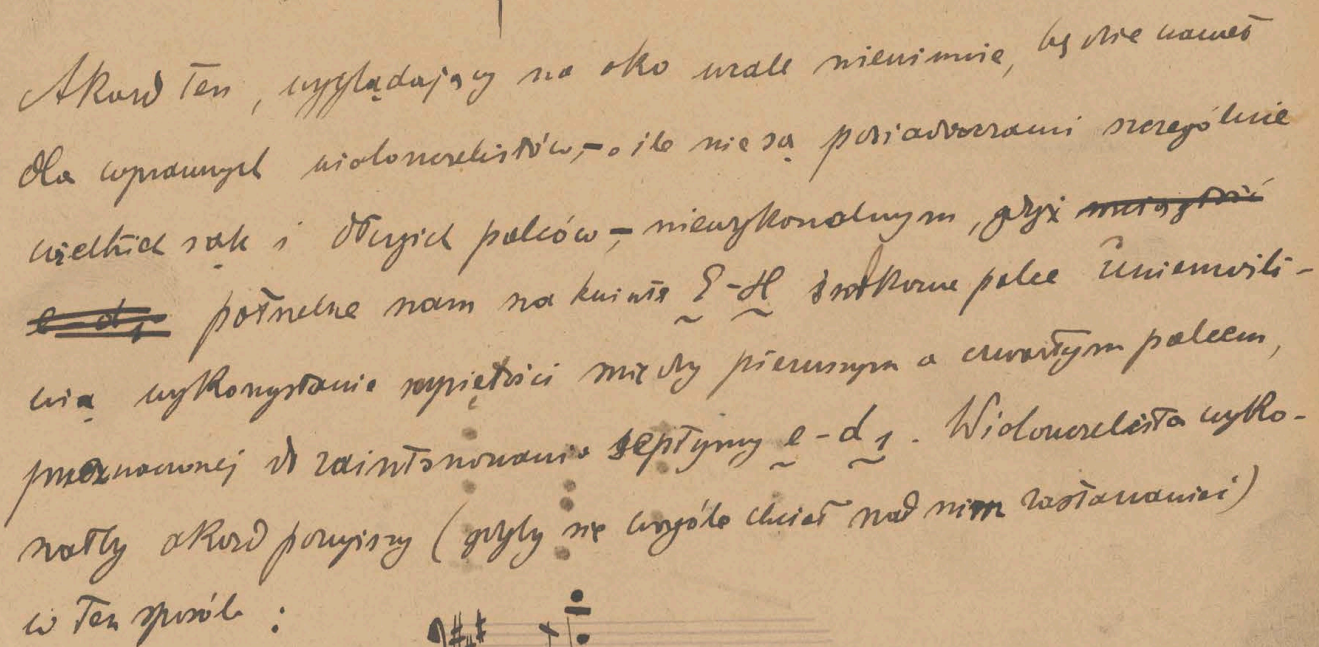 Akord ten, wyglądający na oko wcale niewinnie, będzie nawet
dla wprawnych wiolonczelistów, – o ile nie są posiadaczami szczególnie
wielkich rąk i długich palców –, niewykonalnym, gdyż
e-d1 potrzebne nam na kwintę E-H środkowe palce uniemożli-
wią wykorzystanie rozpiętości między pierwszym a czwartym palcem,
przeznaczonej do zaintonowania septymy e-d1. Wiolonczelista wyko-
nałby akord powyższy (gdyby się wogóle chciał nad nim zastanawiać)
w ten sposób :